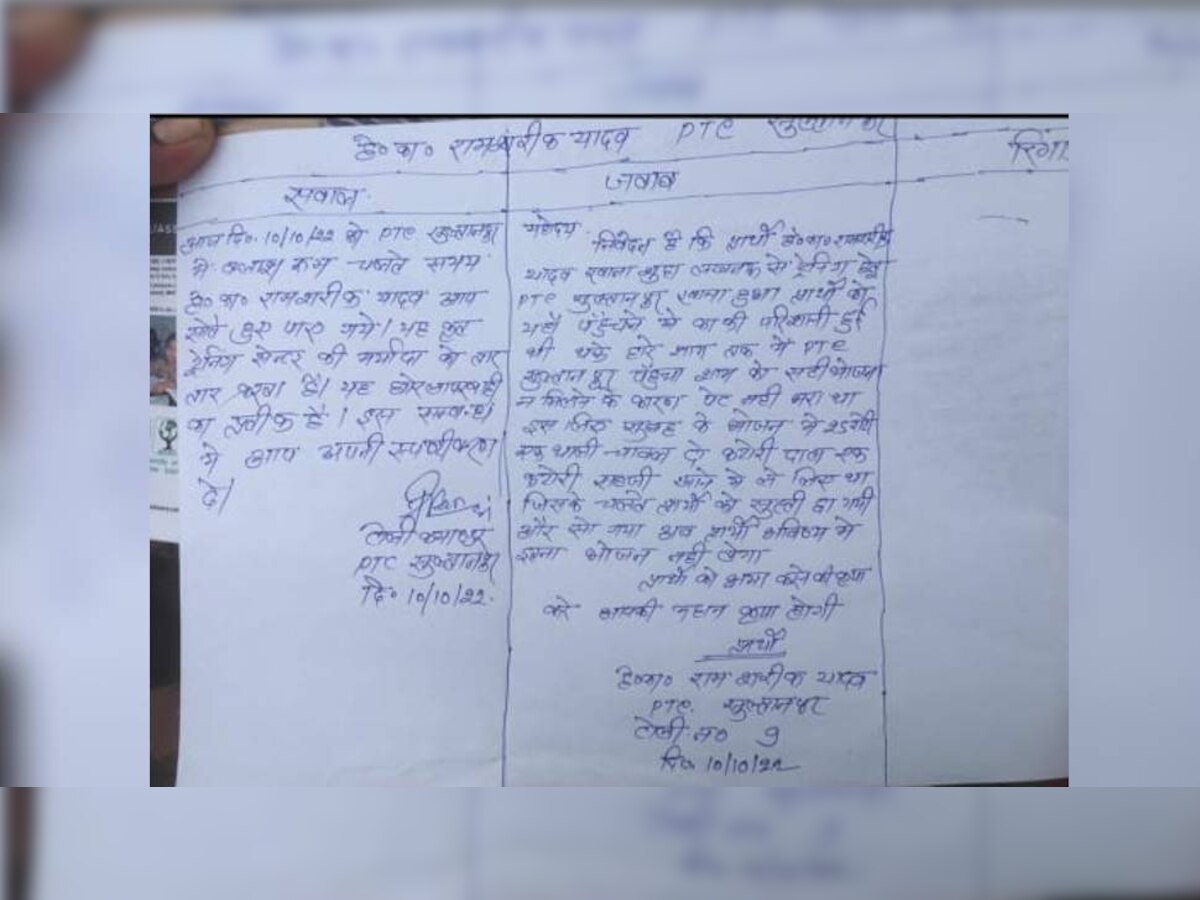 हे०का० रामशरीक यादव PTC सुल्तानपुर
सवाल
आज दि० 10/10/22 को PTC सुल्तानपुर
मे क्लाश रूम चलते समय
हे० का० रामशरीक यादव आप
सोते हुए पाए गये। यह कृत
ट्रेनिंग सेन्टर की मर्यादा को तार
तार करता है। यह घोर लापरवाही
का प्रतीक है। इस सम्बन्ध
मे आप अपनी स्पष्टीकरण
दे।
टोली कमाण्डर
PTC सुल्तानपुर
दि० 10/10/22
जवाब
महोदय
निवेदन है कि प्रार्थी हे०का० रामशरीक
यादव रवाना शुदा लखनऊ से ट्रेनिंग हेतु
PTC सुल्तानपुर रवाना हुआ प्रार्थी को
यहाँ पहुंचने मे काफी परिशानी हुई
थी थके हारे शाम तक मे PTC
सुल्तानपुर पहुंचा शाम को सही भोजन
न मिलने के कारण पेट नही भरा था
इस लिए सुबह के भोजन मे 25 रोटी
एक थाली चावल दो कटोरी दाल एक
कटोरी सब्जी खाने मे ले लिए था
जिसके चलते प्रार्थी को सुस्ती छा गयी
और सो गया अब प्रार्थी भविष्य मे
इतना भोजन नही लेगा
प्रार्थी को क्षमा करने की कृपा
करे आपकी महान कृपा होगी
प्रार्थी
हे०का० राम शरीक यादव
PTC. सुल्तानपुर
टोली न० 9
दि० 10/10/22